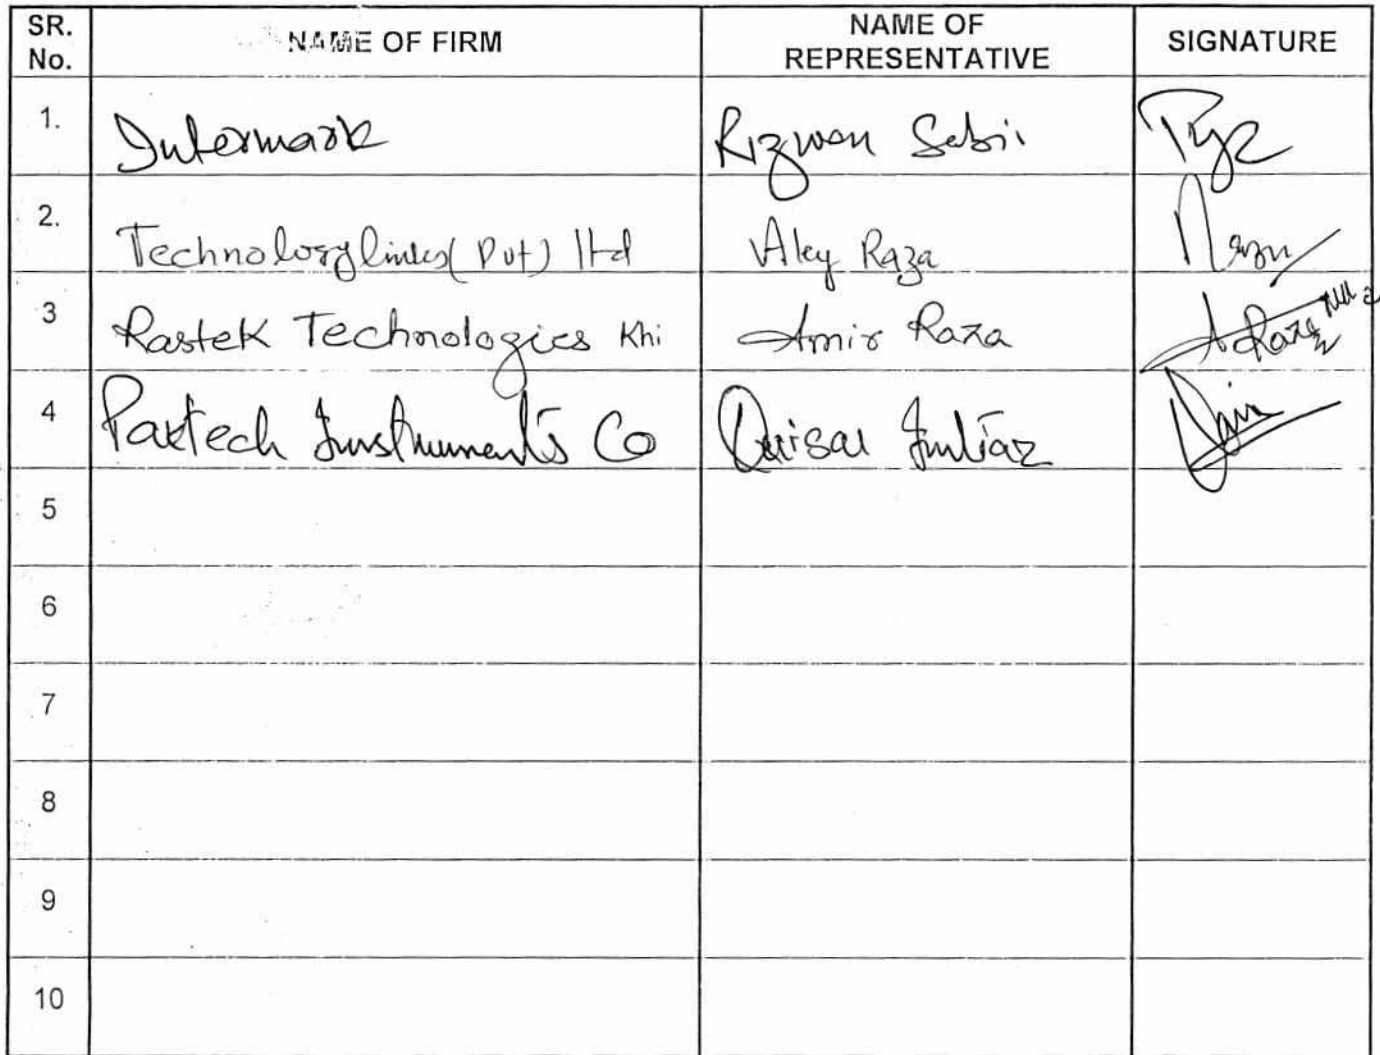 SR. No. NAME OF FIRM NAME OF REPRESENTATIVE SIGNATURE
1. Intermark Rizwan Sabir
2. Technology links (Pvt) ltd Aley Raza
3 Rastek Technologies Khi Amir Raza
4 Paktech Instruments Co Imtiaz
5
6
7
8
9
10